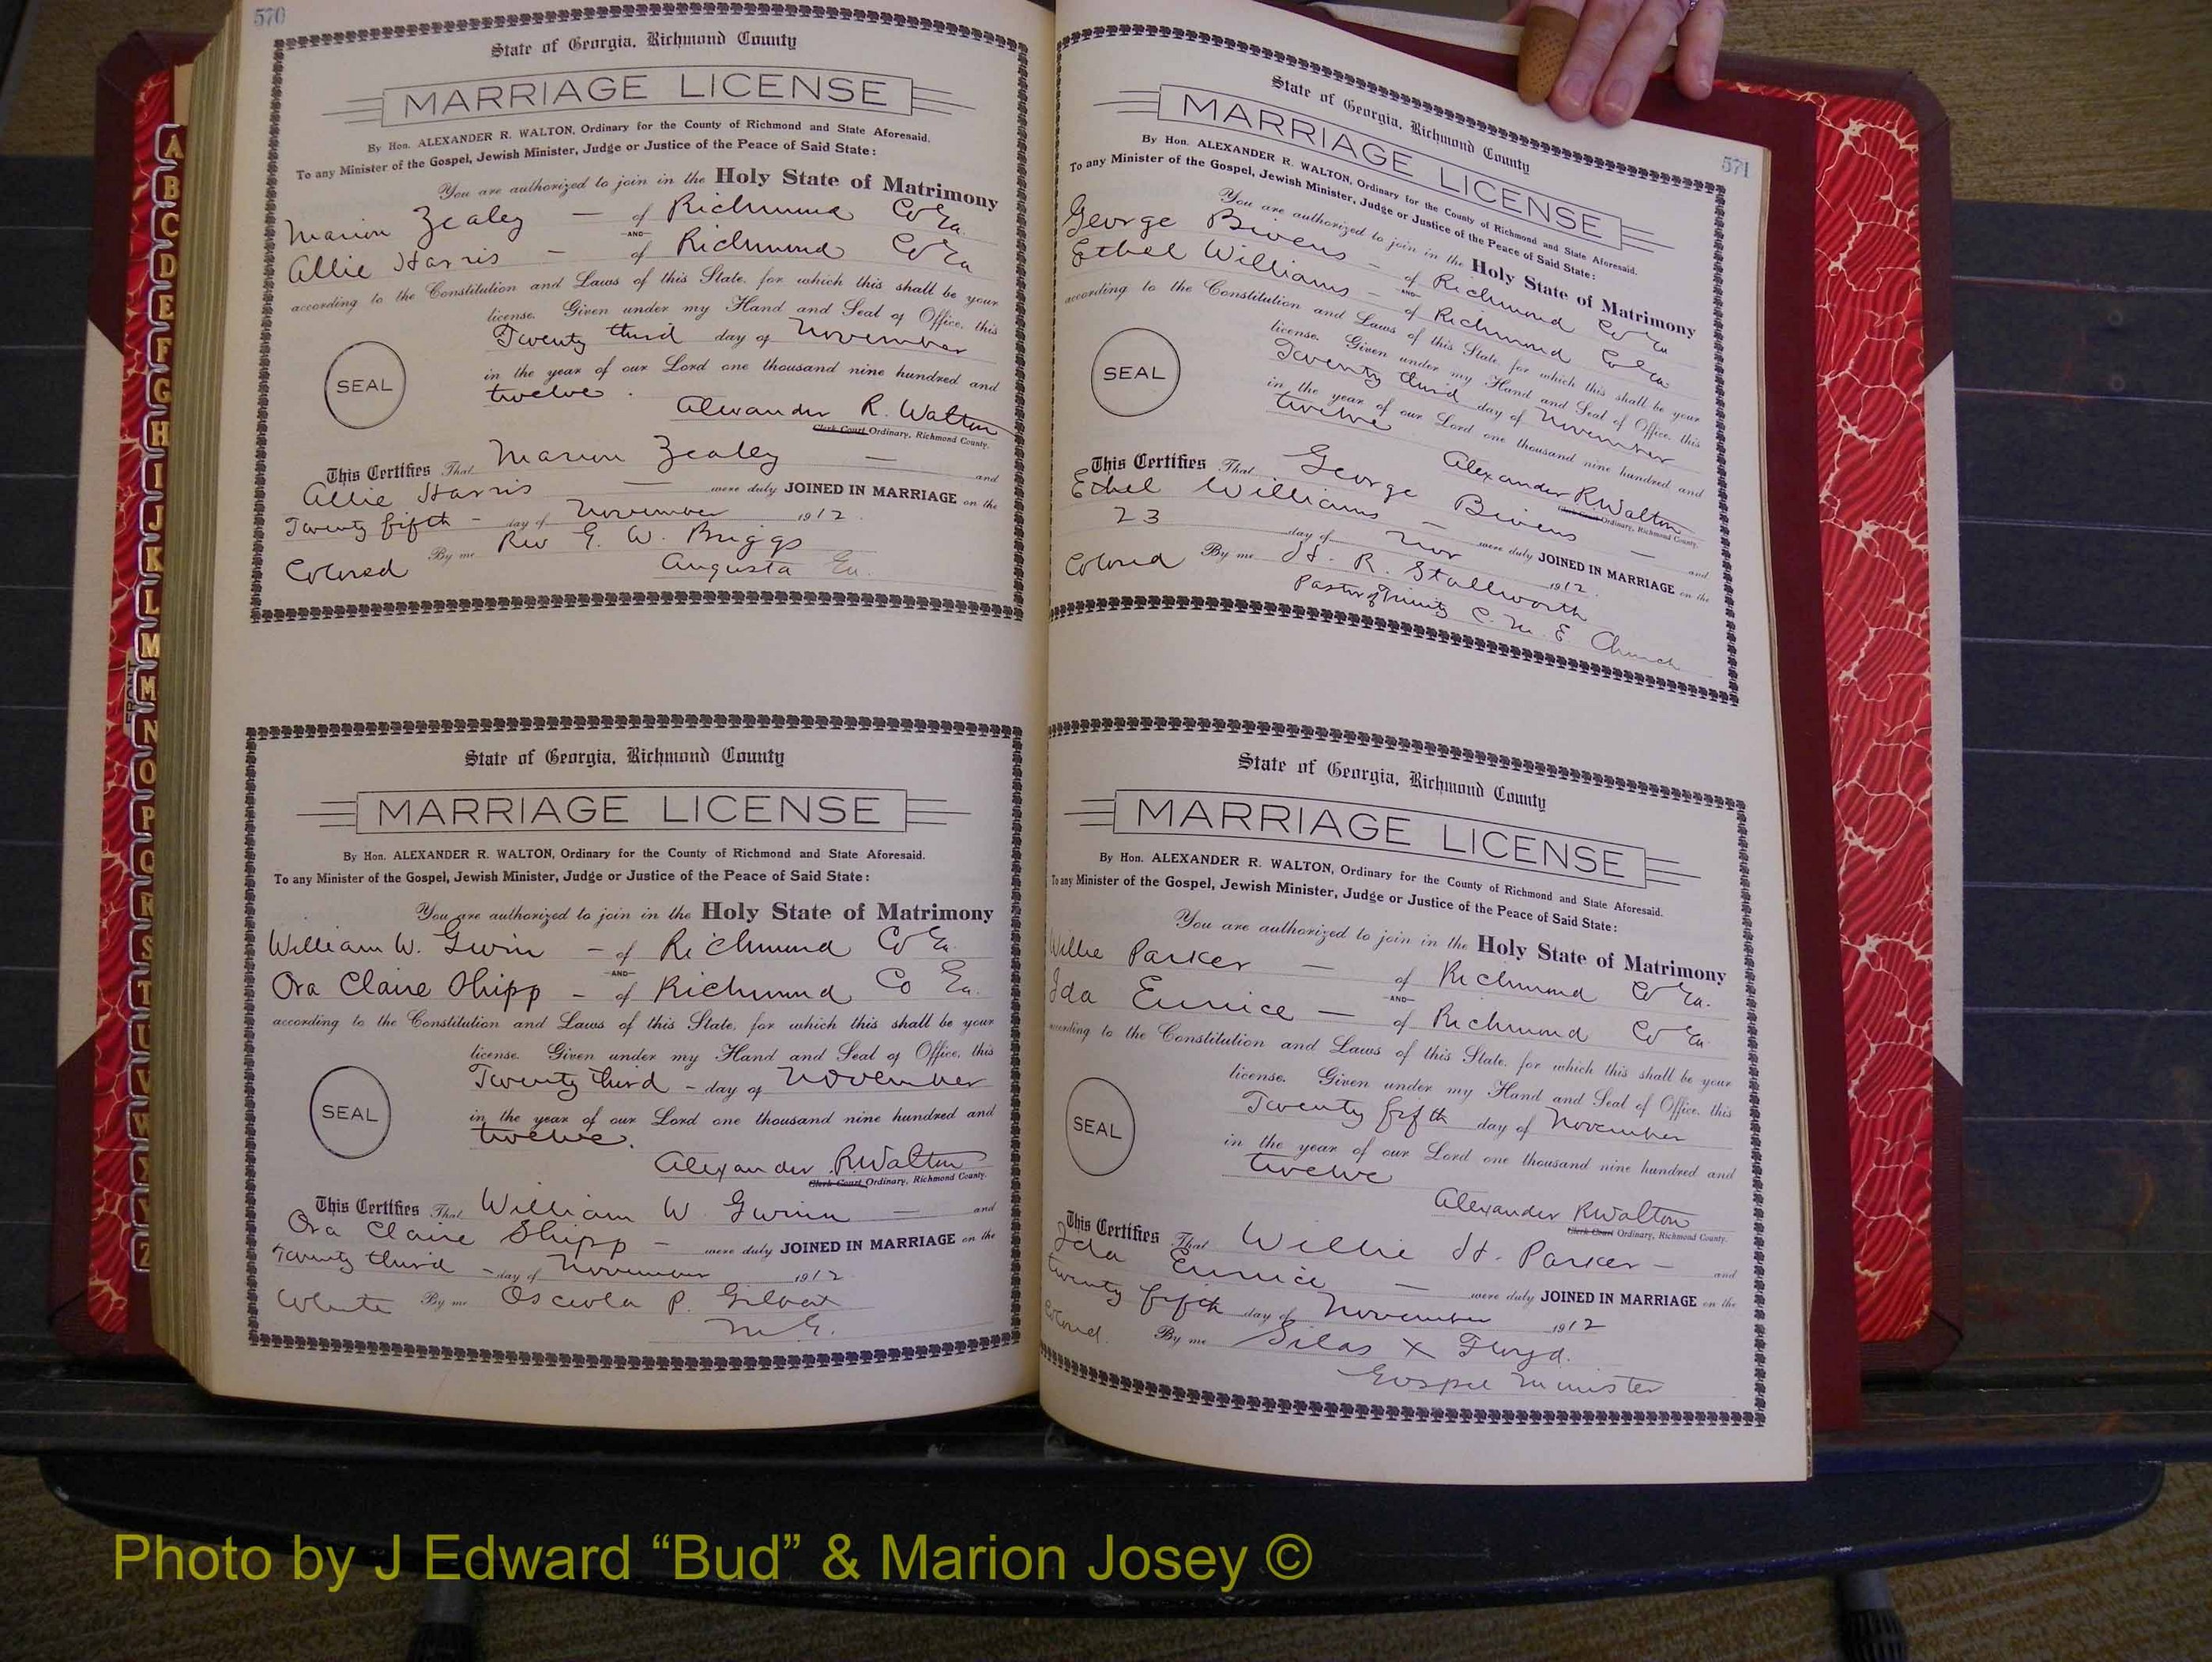 570
State of Georgia, Richmond County
MARRIAGE LICENSE
By Hon. ALEXANDER R. WALTON, Ordinary for the County of Richmond and State Aforesaid.
To any Minister of the Gospel, Jewish Minister, Judge or Justice of the Peace of Said State:
You are authorized to join in the Holy State of Matrimony
Marion Zealey — of Richmond Co Ga.
AND
Allie Harris — of Richmond Co Ga
according to the Constitution and Laws of this State, for which this shall be your
license. Given under my Hand and Seal of Office, this
Twenty third day of November
in the year of our Lord one thousand nine hundred and
twelve.
SEAL
Alexander R. Walton
Clerk Court Ordinary, Richmond County.
This Certifies That Marion Zealey — and
Allie Harris — were duly JOINED IN MARRIAGE on the
Twenty fifth - day of November 1912
Colored By me Rev G. W. Briggs
Augusta Ga.
State of Georgia, Richmond County
MARRIAGE LICENSE
By Hon. ALEXANDER R. WALTON, Ordinary for the County of Richmond and State Aforesaid.
To any Minister of the Gospel, Jewish Minister, Judge or Justice of the Peace of Said State:
You are authorized to join in the Holy State of Matrimony
William W. Gwin - of Richmond Co Ga.
AND
Ora Claire Shipp - of Richmond Co Ga.
according to the Constitution and Laws of this State, for which this shall be your
license. Given under my Hand and Seal of Office, this
Twenty third - day of November
in the year of our Lord one thousand nine hundred and
twelve.
SEAL
Alexander R Walton
Clerk Court Ordinary, Richmond County.
This Certifies That William W Gwinn — and
Ora Claire Shipp - were duly JOINED IN MARRIAGE on the
Twenty third - day of November 1912
White By me Osceola P. Gilbert
M. G.
571
State of Georgia, Richmond County
MARRIAGE LICENSE
By Hon. ALEXANDER R. WALTON, Ordinary for the County of Richmond and State Aforesaid.
To any Minister of the Gospel, Jewish Minister, Judge or Justice of the Peace of Said State:
You are authorized to join in the Holy State of Matrimony
George Bivens - of Richmond Co Ga
AND
Ethel Williams - of Richmond Co Ga
according to the Constitution and Laws of this State, for which this shall be your
license. Given under my Hand and Seal of Office, this
Twenty third day of November
in the year of our Lord one thousand nine hundred and
twelve
SEAL
Alexander R. Walton
Clerk Court Ordinary, Richmond County.
This Certifies That George Bivens — and
Ethel Williams — were duly JOINED IN MARRIAGE on the
23 day of Nov 1912.
Colored By me H. R. Stallworth
Pastor of Trinity C. M. E Church
State of Georgia, Richmond County
MARRIAGE LICENSE
By Hon. ALEXANDER R. WALTON, Ordinary for the County of Richmond and State Aforesaid.
To any Minister of the Gospel, Jewish Minister, Judge or Justice of the Peace of Said State:
You are authorized to join in the Holy State of Matrimony
Willie Parker — of Richmond Co Ga.
AND
Ida Eunice — of Richmond Co Ga.
according to the Constitution and Laws of this State, for which this shall be your
license. Given under my Hand and Seal of Office, this
Twenty fifth day of November
in the year of our Lord one thousand nine hundred and
twelve
SEAL
Alexander R Walton
Clerk Court Ordinary, Richmond County.
This Certifies That Willie H. Parker — and
Ida Eunice — were duly JOINED IN MARRIAGE on the
twenty fifth day of November 1912
Colored. By me Silas X Floyd.
Gospel Minister
A
B
C
D
E
F
G
H
I
J
K
L
M
M
N
O
P
Q
R
S
T
U
V
W
X
Y
Z
Photo by J Edward “Bud” & Marion Josey ©